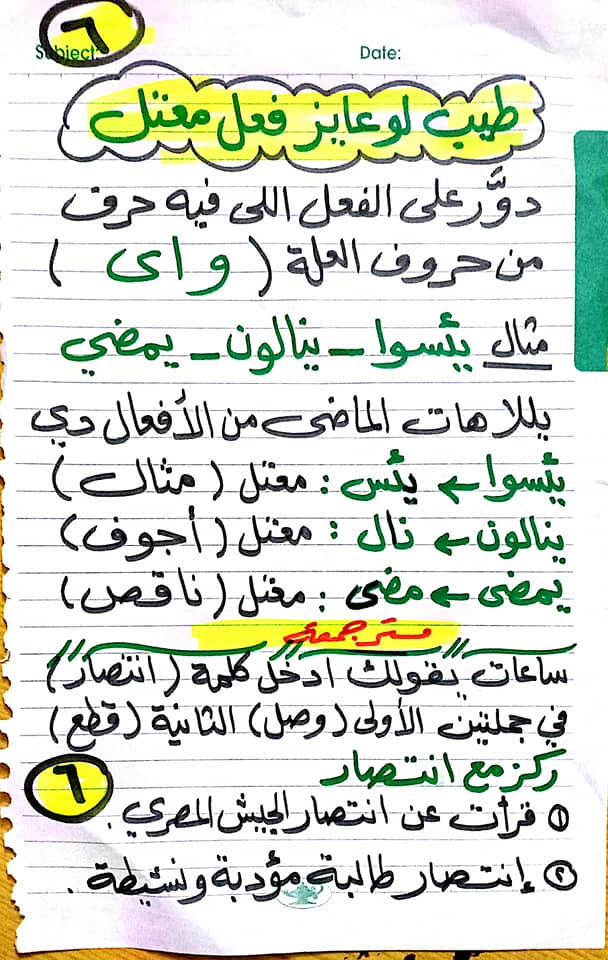 ٦
Subject: Date:
طيب لو عايز فعل معتل
دوَّر على الفعل اللى فيه حرف
من حروف العلة ( و ا ى )
مثال يئسوا - ينالون - يمضي
يللا هات الماضى من الأفعال دي
يئسوا ← يئس : معتل ( مثال )
ينالون ← نال : معتل ( أجوف )
يمضى ← مضى : معتل ( ناقص )
مستر جمعه
ساعات يقولك ادخل كلمة ( انتصار )
في جملتين الأولى ( وصل ) الثانية ( قطع )
ركز مع انتصار
٦
① قرأت عن انتصار الجيش المصري .
② إنتصار طالبة مؤدبة ونشيطة .